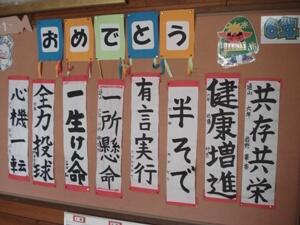 おめでとう
共存共栄
健康増進
半そで
有言実行
一所懸命
一生けん命
全力投球
心機一転